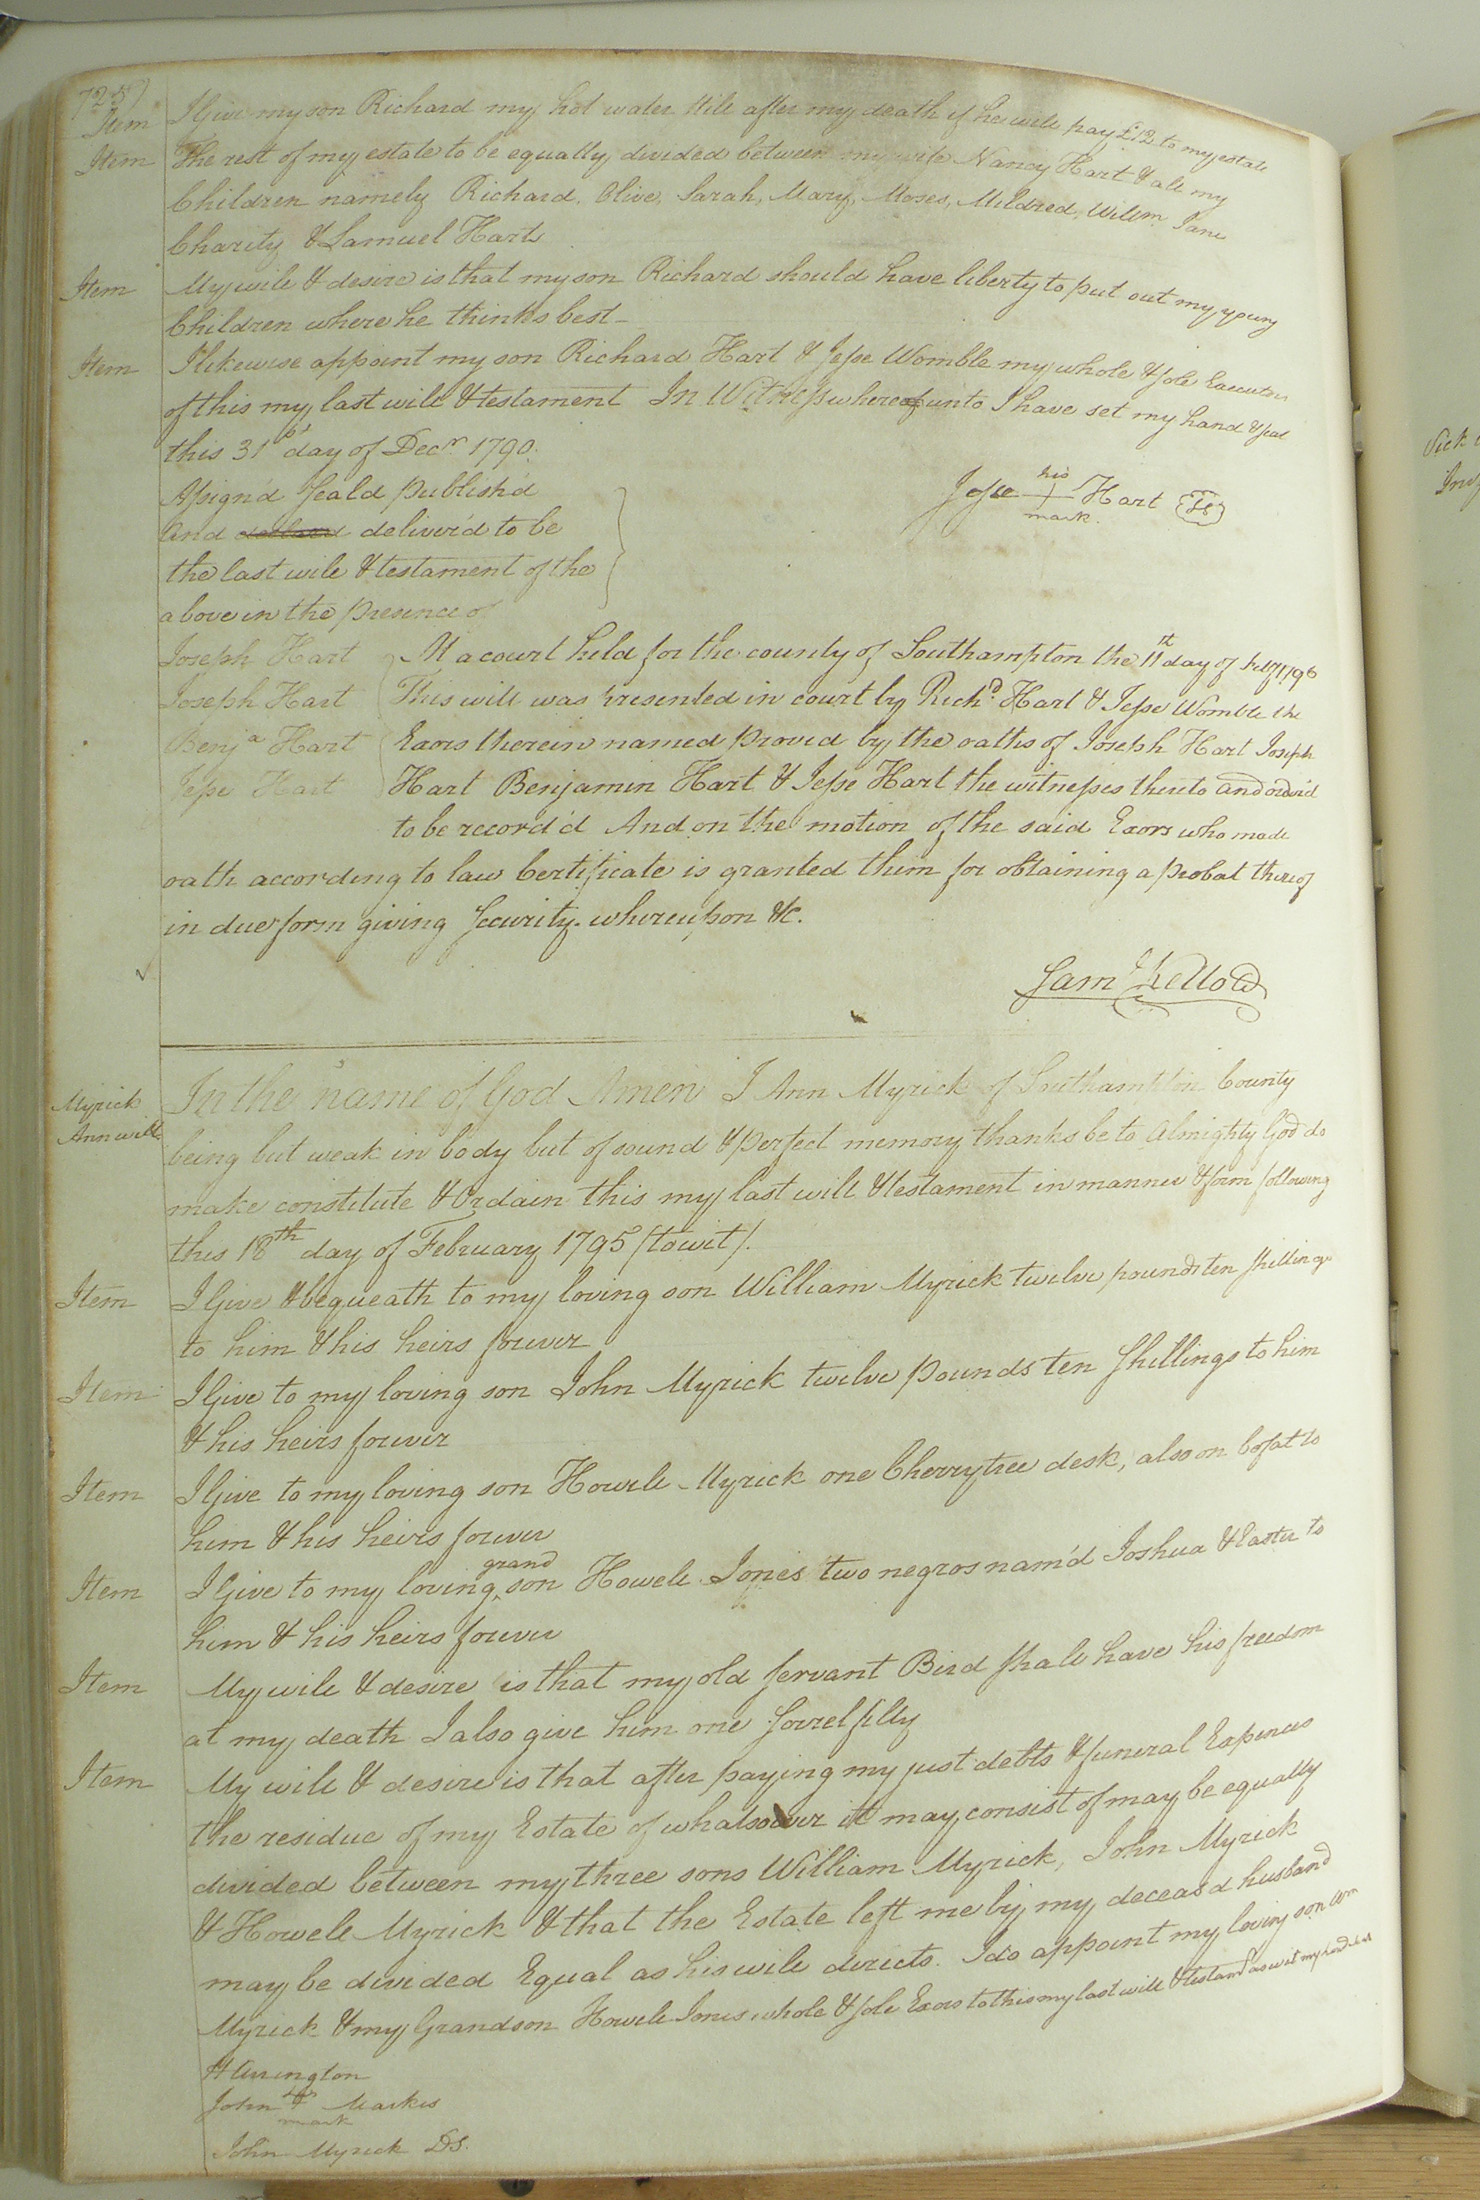 725)
Item I Give my son Richard my hot water Still after my death if he will pay £12 to my estate
Item The rest of my estate to be equally divided between my wife Nancy Hart & all my
Children namely Richard, Olive, Sarah, Mary, Moses, Mildred, Willm. Jane
Charity & Samuel Hart
Item My will & desire is that my son Richard should have liberty to put out my young
Children where he thinks best
Item I likewise appoint my son Richard Hart & Jesse Womble my whole & sole Executors
of this my last will & testament In Witness whereunto I have set my hand & seal
this 31st day of Decr 1790.
Assign'd Seald publish'd
And deliver'd to be
the last will & testament of the
above in the presence of
his
Jesse + Hart LS
mark.
Joseph Hart
Joseph Hart
Benja Hart
Jesse Hart
At a court held for the county of Southampton the 11th day of Feby 1796
This will was presented in court by Richd Hart & Jesse Womble the
Exors therein named proved by the oaths of Joseph Hart Joseph
Hart Benjamin Hart & Jesse Hart the witnesses thereto and order'd
to be record'd And on the motion of the said Exors who made
oath according to law Certificate is granted them for obtaining a probat thereof
in due form giving Security. whereupon &c.
Saml Kello CC
Myrick Ann will
In the name of God Amen I Ann Myrick of Southampton County
being but weak in body but of sound & perfect memory thanks be to Almighty God do
make constitute & Ordain this my last will & testament in manner & form following
this 18th day of February 1795 /towit/.
Item I Give & bequeath to my loving son William Myrick twelve pounds ten Shillings
to him & his heirs forever
Item I Give to my loving son John Myrick twelve pounds ten Shillings to him
& his heirs forever
Item I Give to my loving son Howell Myrick one Cherrytree desk, also on Bofat to
him & his heirs forever
Item I Give to my loving grand son Howell Jones two negros nam'd Joshua & Easter to
him & his heirs forever
Item My will & desire is that my old servant Bird shall have his freedom
at my death I also give him one Sorrel filly
Item My will & desire is that after paying my just debts & funeral Expences
the residue of my Estate of whatsoever it may consist of may be equally
divided between my three sons William Myrick, John Myrick
& Howell Myrick & that the Estate left me by my deceas'd husband
may be divided Equal as his will directs. I do appoint my loving son Wm
Myrick & my Grandson Howell Jones whole & sole Exors to this my last will & testamt as wit my hand
John Markes
mark
John Myrick